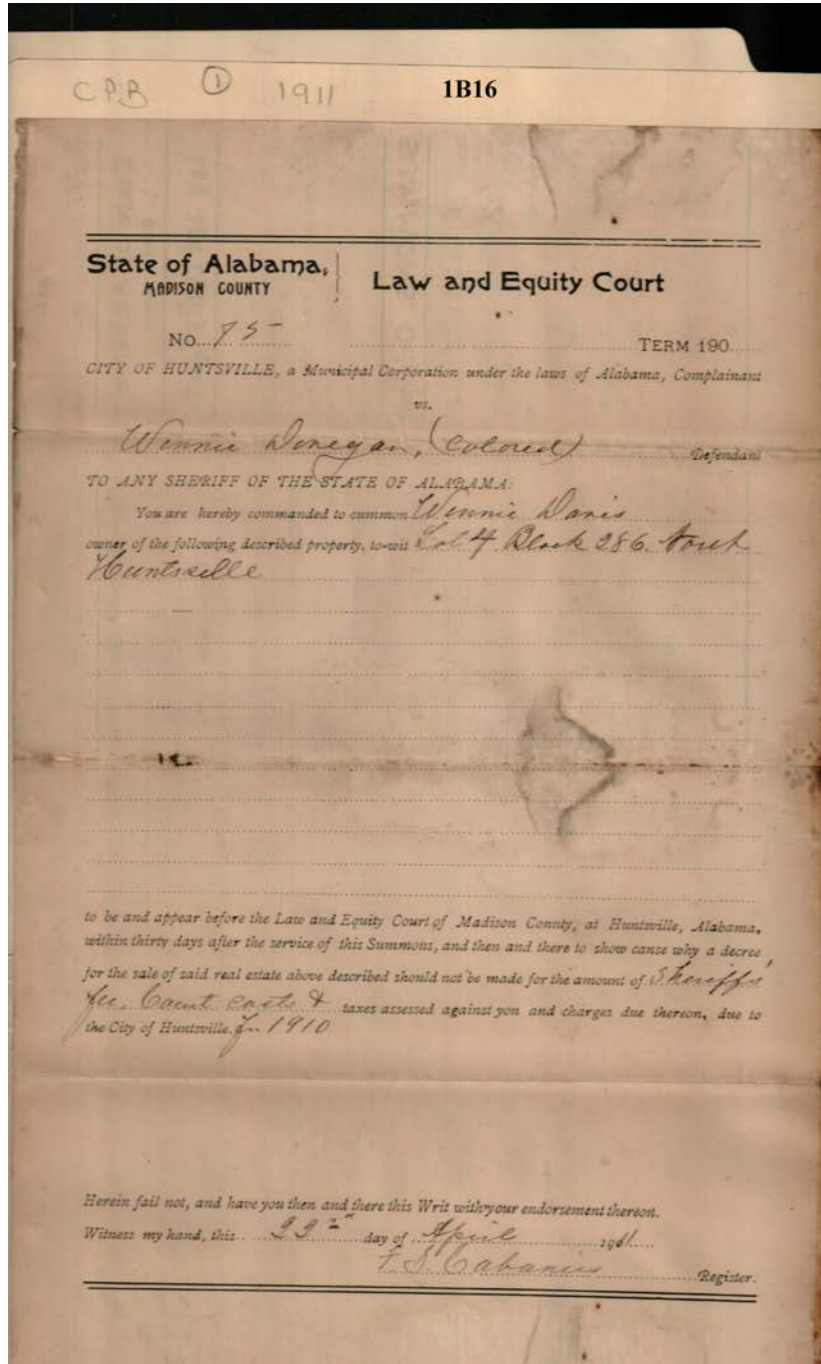 CPB ① 1911 1B16
State of Alabama, Law and Equity Court
MADISON COUNTY
No. 75 TERM 190
CITY OF HUNTSVILLE, a Municipal Corporation under the laws of Alabama, Complainant
vs.
Winnie Donegan, (Colored) Defendant
TO ANY SHERIFF OF THE STATE OF ALABAMA:
You are hereby commanded to summon Winnie Davis
owner of the following described property, to-wit Lot 4 Block 286.
Huntsville
to be and appear before the Law and Equity Court of Madison County, at Huntsville, Alabama,
within thirty days after the service of this Summons, and then and there to show cause why a decree
for the sale of said real estate above described should not be made for the amount of Sheriff's
fee, Court costs & taxes assessed against you and charges due thereon, due to
the City of Huntsville. for 1910
Herein fail not, and have you then and there this Writ with your endorsement thereon.
Witness my hand, this 22nd day of April 1911
F. S. Cabaniss Register.